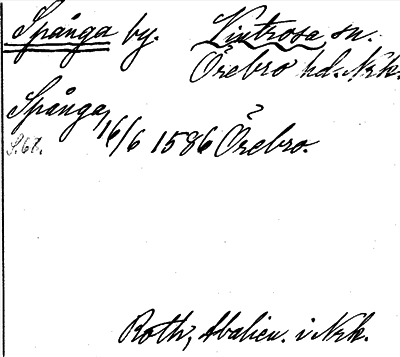 Spånga by. Vintrosa sn.
Örebro hd. Nrk.
Spånga, 16/6 1586 Örebro.
S.67.
Roth, Abalien. i Nrk.